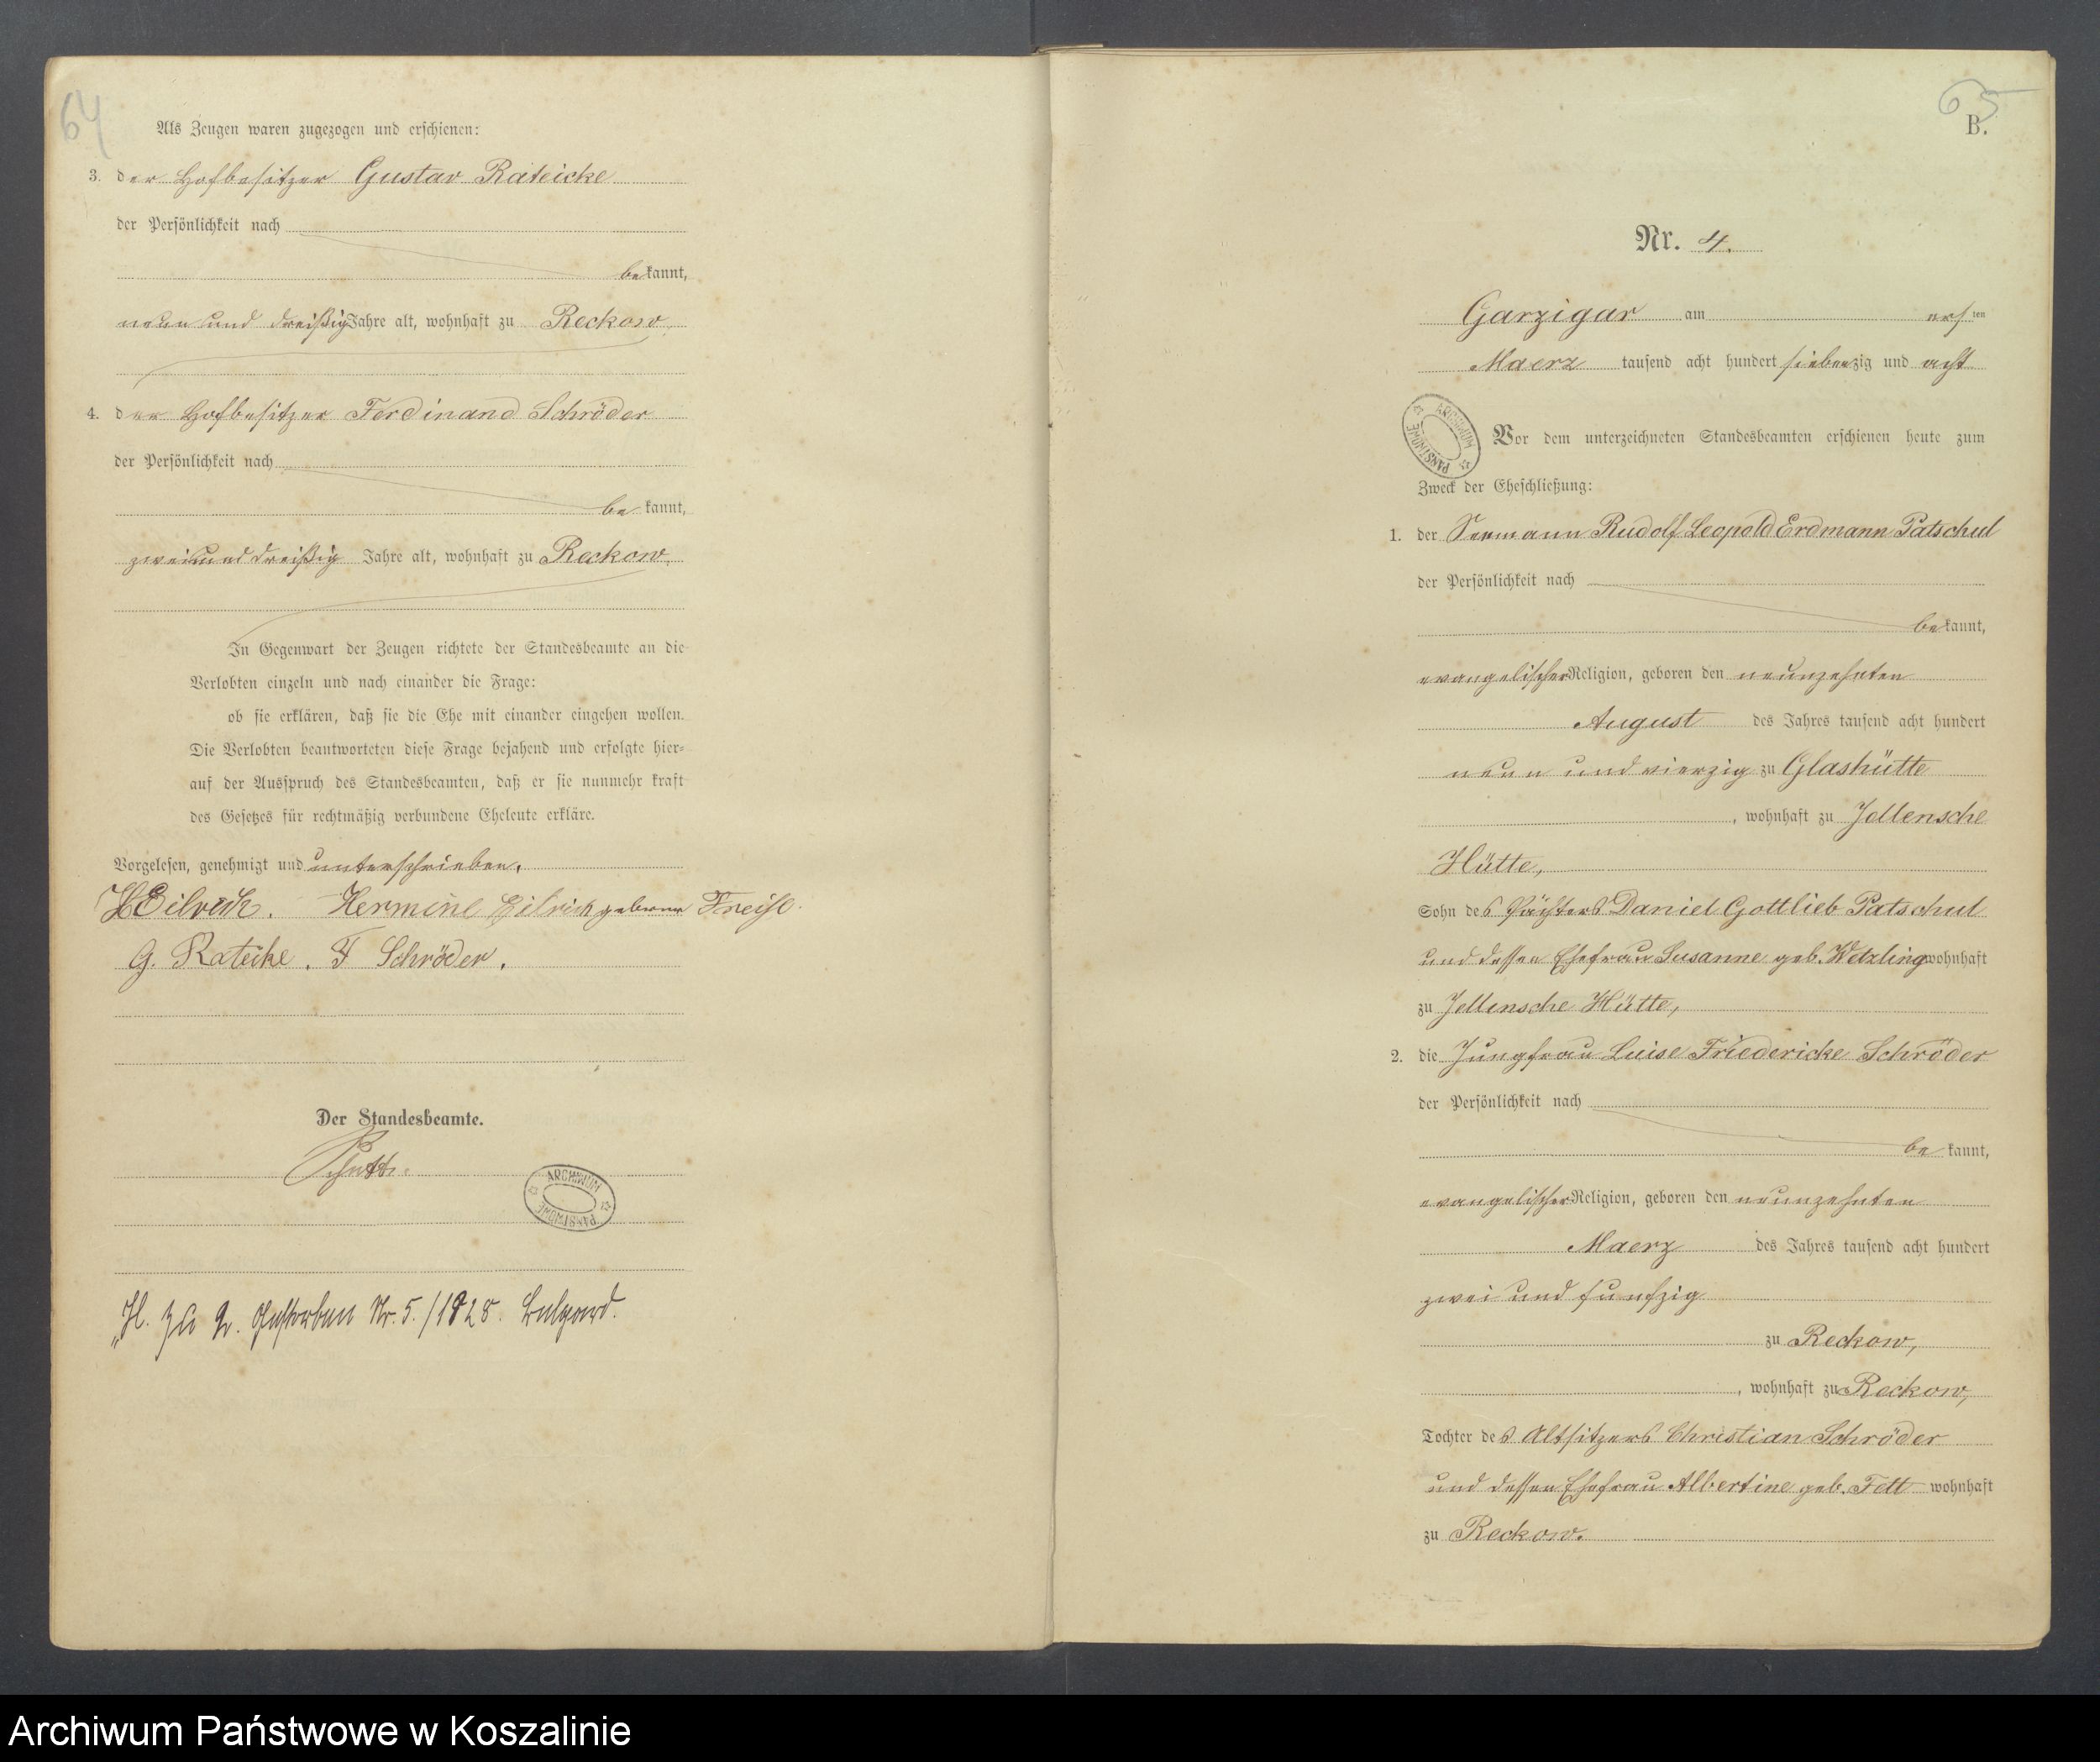 64
Als Zeugen waren zugezogen und erschienen:
3. der Hofbesitzer Gustav Rateicke
der Persönlichkeit nach
bekannt,
neun und dreißig Jahre alt, wohnhaft zu Reckow,
4. der Hofbesitzer Ferdinand Schröder
der Persönlichkeit nach
bekannt,
zwei und dreißig Jahre alt, wohnhaft zu Reckow,
In Gegenwart der Zeugen richtete der Standesbeamte an die
Verlobten einzeln und nach einander die Frage:
ob sie erklären, daß sie die Ehe mit einander eingehen wollen.
Die Verlobten beantworteten diese Frage bejahend und erfolgte hier-
auf der Ausspruch des Standesbeamten, daß er sie nunmehr kraft
des Gesetzes für rechtmäßig verbundene Eheleute erkläre.
Vorgelesen, genehmigt und unterschrieben.
H Eilrich. Hermine Eilrich geborne Freise.
G. Rateike. F Schröder.
Der Standesbeamte.
ARCHIWUM PAŃSTWOWE
gestorben Nr. 5./1928. Belgard.
65
B.
Nr. 4.
Garzigar am ersten
Maerz tausend acht hundert siebenzig und acht
ARCHIWUM PAŃSTWOWE
Vor dem unterzeichneten Standesbeamten erschienen heute zum
Zweck der Eheschließung:
1. der Seemann Rudolf Leopold Erdmann Patschul
der Persönlichkeit nach
bekannt,
evangelischer Religion, geboren den neunzehnten
August des Jahres tausend acht hundert
neun und vierzig zu Glashütte
, wohnhaft zu Jellensche
Hütte,
Sohn des Pächters Daniel Gottlieb Patschul
und dessen Ehefrau Susanne geb. Wetzling wohnhaft
zu Jellensche Hütte,
2. die Jungfrau Luise Friedericke Schröder
der Persönlichkeit nach
bekannt,
evangelischer Religion, geboren den neunzehnten
Maerz des Jahres tausend acht hundert
zwei und funfzig
zu Reckow,
, wohnhaft zu Reckow,
Tochter des Altsitzers Christian Schröder
und dessen Ehefrau Albertine geb. Fett wohnhaft
zu Reckow.
Archiwum Państwowe w Koszalinie